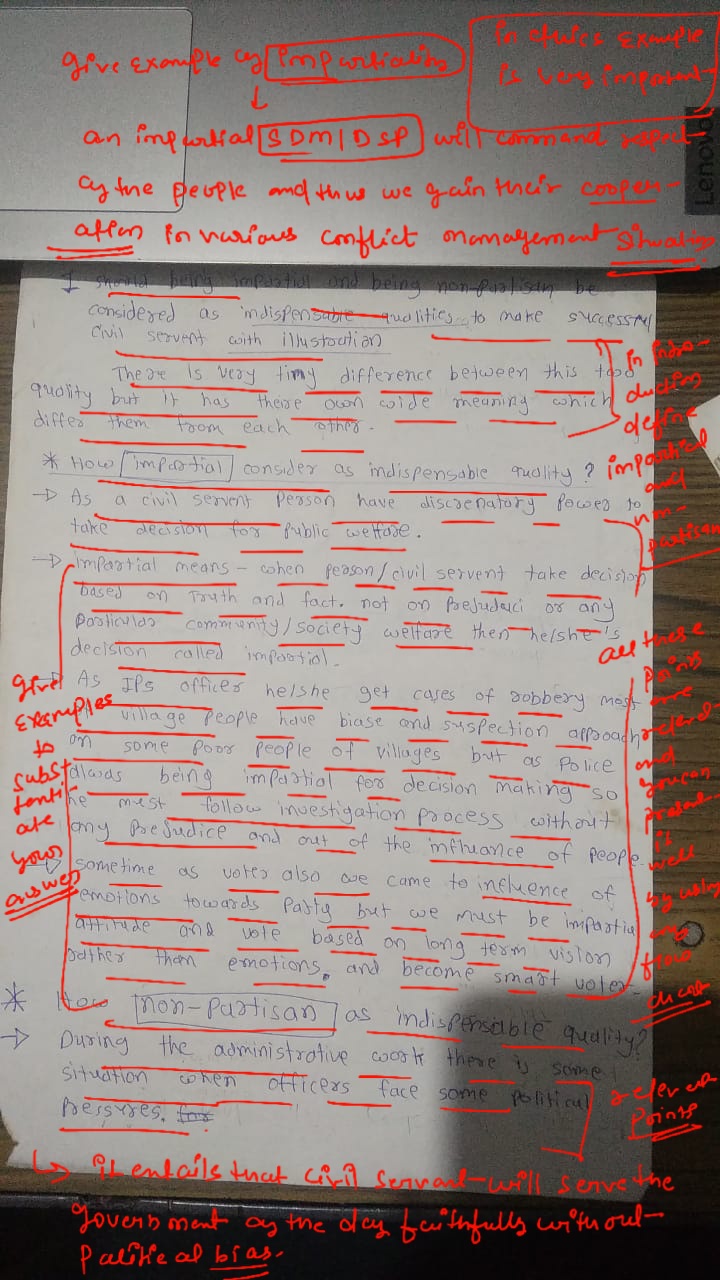 give example of impartiality
In ethics Example
is very important
Lenovo
an impartial SDM/DSP will command respect
of the people and thus we gain their cooper-
ation in various conflict management situation
I should being impartial and being non-partisan be
considered as indispensable qualities to make successful
civil servent with illustration
There is very tiny difference between this two
quality but it has there own wide meaning which
differ them from each other.
In intro-
duction
define
impartial
and
non-
partisan
* How impartial consider as indispensable quality?
→ As a civil servent person have discrenatory power to
take decision for public welfare.
→ impartial means - when person/civil servent take decision
based on Truth and fact. not on prejudaci or any
particular community/society welfare then he/she's
decision called impartial.
→ As IPS officer he/she get cases of robbery most
village people have biase and suspection approach
on some poor people of villages but as police
alwas being impartial for decision making so
he must follow investigation process without
any prejudice and out of the influance of people.
→ sometime as voter also we came to influence of
emotions towards party but we must be impartial
attitude and vote based on long term vision
rather than emotions. and become smart voter.
give
Examples
to
subst
tanti
ate
your
answer
all these
points
are
relevant
and
you can
present
it
well
by using
any
flow
chart
* How non-partisan as indispensable quality?
→ During the administrative work there is some
situation when officers face some political
pressures.
relevant
points
↳ it entails that civil servant will serve the
government of the day faithfully without
political bias.